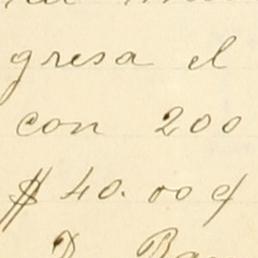 gresa el
con 200
$40.00 c/
D. Ra